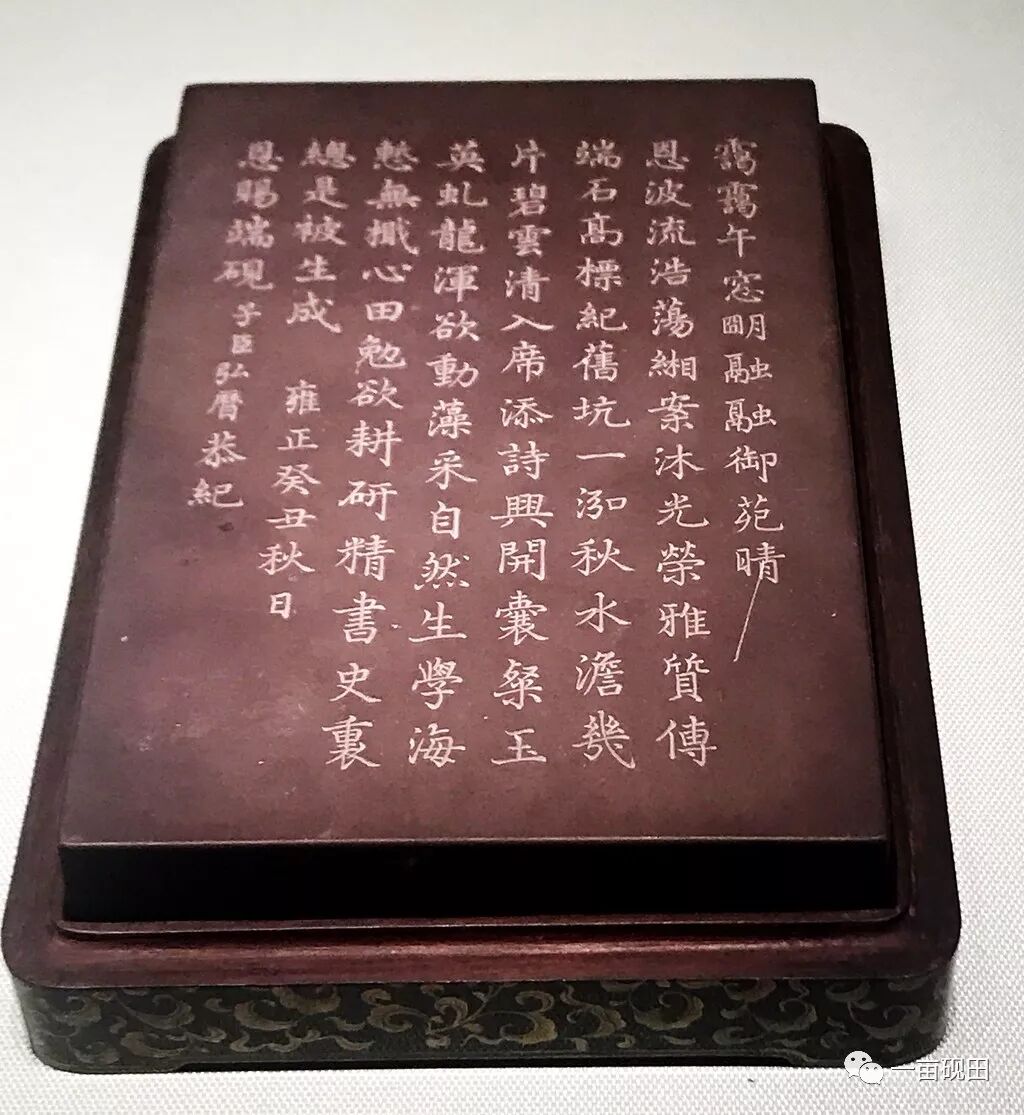 靄靄午窓朙融融御苑晴
恩波流浩蕩緗案沐光榮雅質傳
端石高標紀舊坑一泓秋水澹幾
片碧雲清入席添詩興開囊粲玉
英虬龍渾欲動藻采自然生學海
慙無檝心田勉欲耕研精書史裏
總是被生成 雍正癸丑秋日
恩賜端硯 子臣弘曆恭紀
一亩砚田